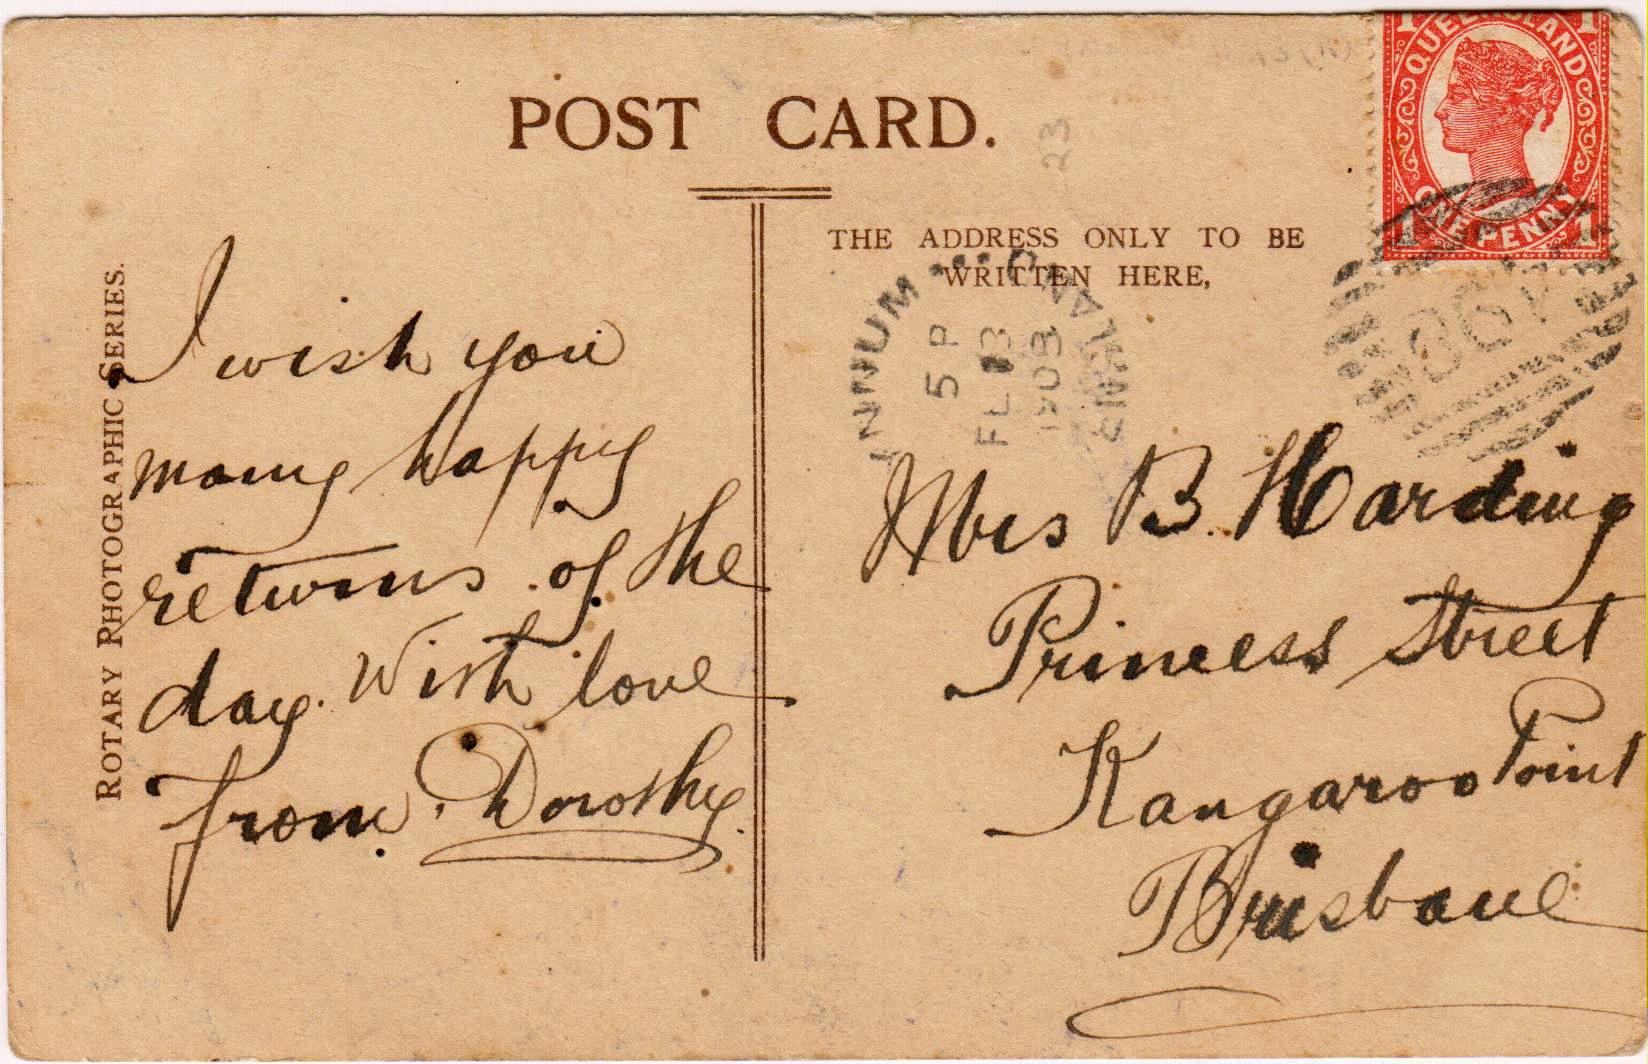 POST CARD.
THE ADDRESS ONLY TO BE
WRITTEN HERE,
ROTARY PHOTOGRAPHIC SERIES.
1 QUEENSLAND 1
1 ONE PENNY 1
23
5 P
1908
I wish you
many happy
returns of the
day. With love
from. Dorothy.
Mrs B. Harding
Princess Street
Kangaroo Point
Brisbane